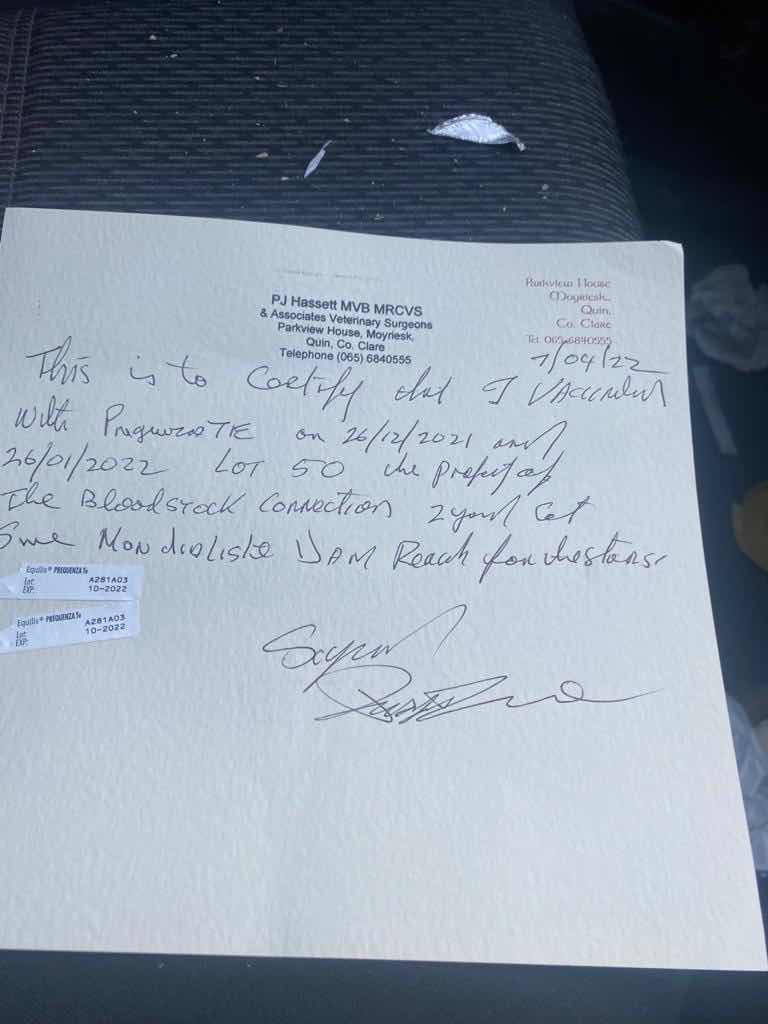 PJ Hassett MVB MRCVS
& Associates Veterinary Surgeons
Parkview House, Moyriesk,
Quin, Co. Clare
Telephone (065) 6840555
Parkview House
Moyriesk,
Quin,
Co. Clare
Tel: 065-6840555
7/04/22
This is to Certify that I
with Prequenza TE on 26/12/2021 and
26/01/2022 LOT 50 the property of
The Bloodstock Connection 2 year
Sire Mondialiste DAM Reach for the stars
Equilis® PREQUENZA Te
Lot: A281A03
EXP: 10-2022
Equilis® PREQUENZA Te
Lot: A281A03
EXP: 10-2022
Signed